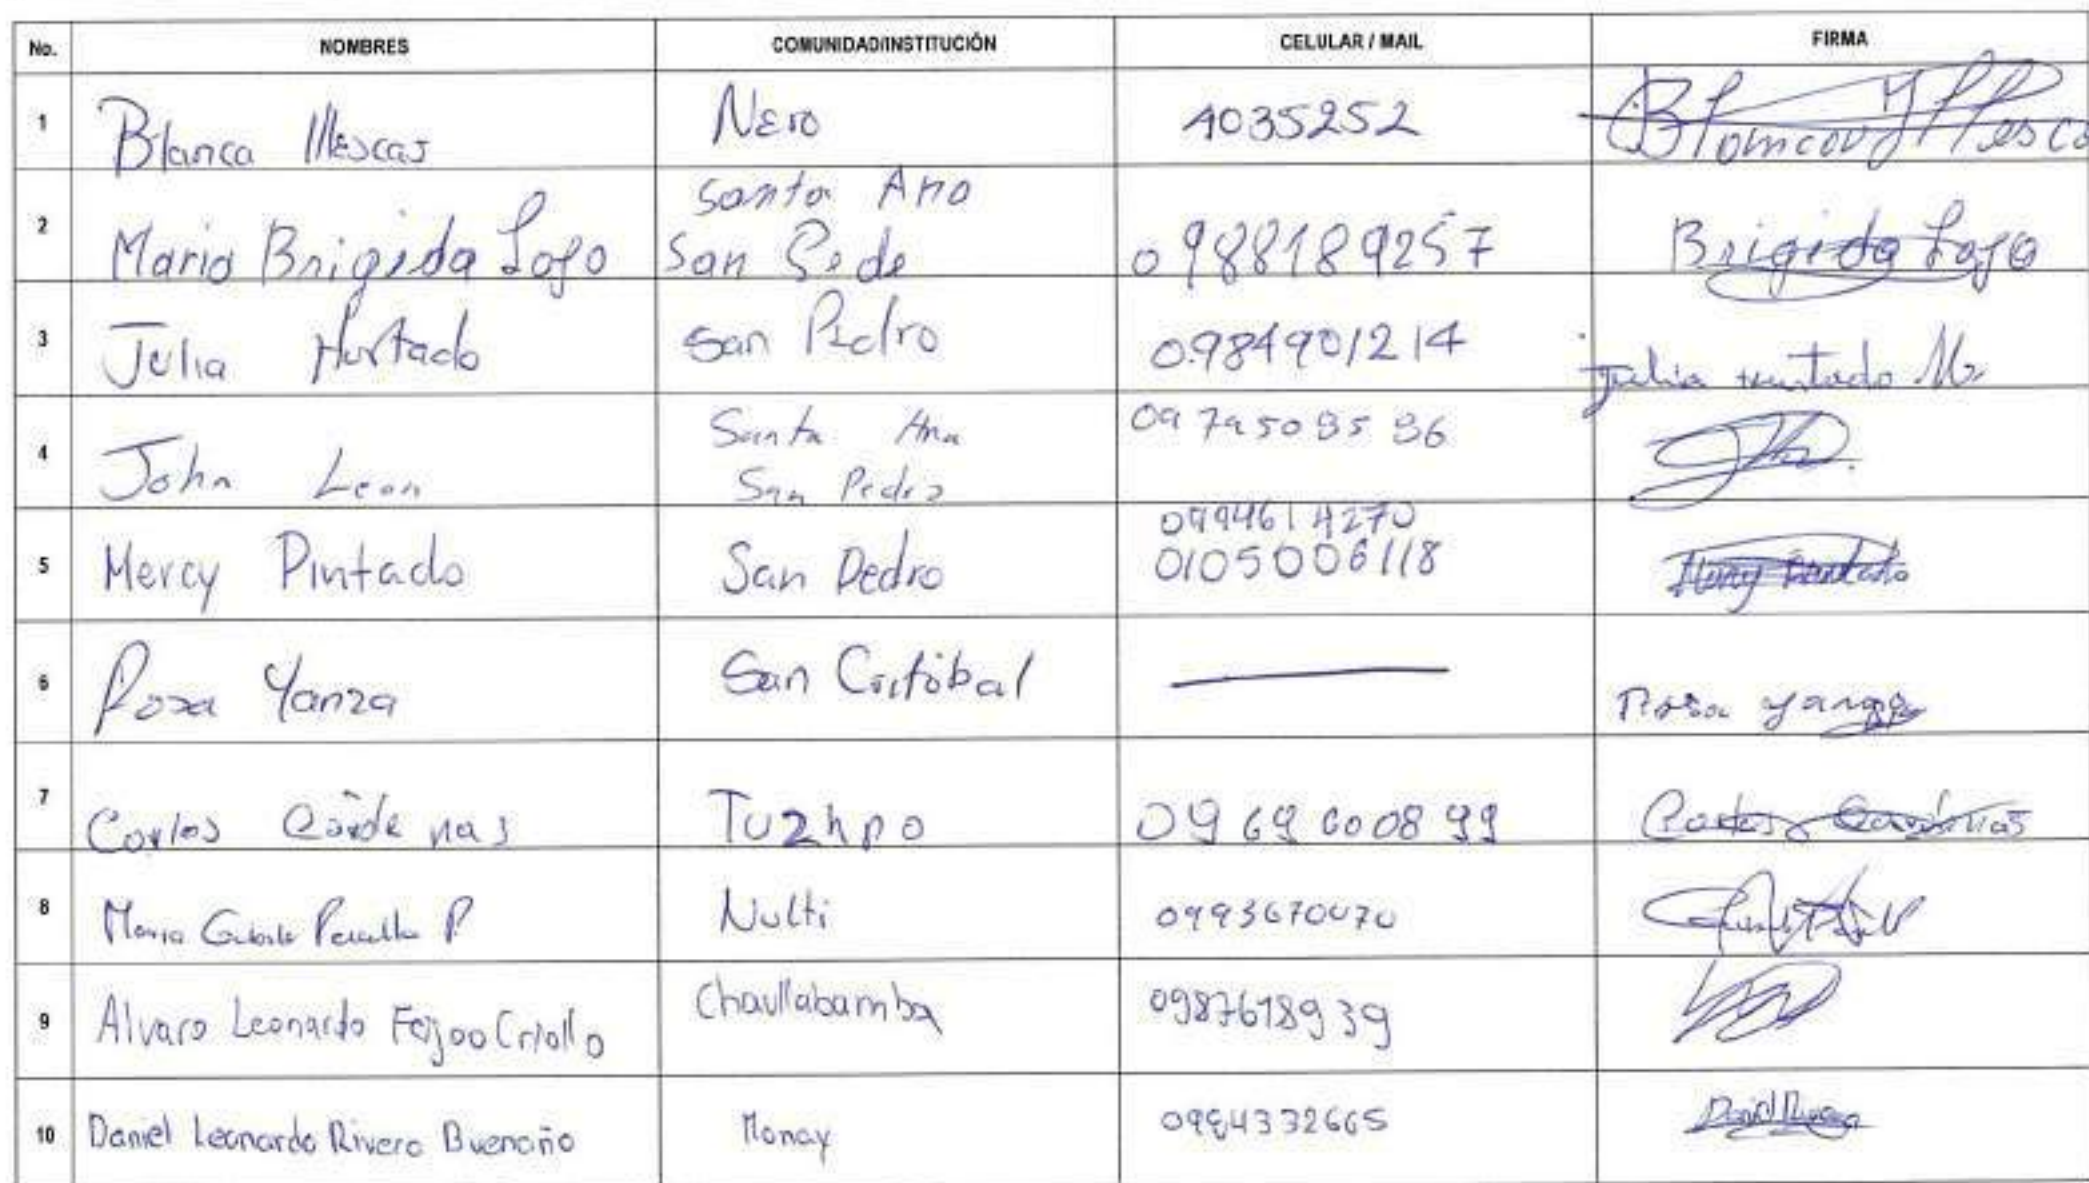 No. NOMBRES COMUNIDAD/INSTITUCIÓN CELULAR / MAIL FIRMA
1 Blanca Illescas Nero 4035252 Blanca Illesca
Santa Ana
2 Maria Brigida Lojo San Pede 0988189257 Brigida Lojo
3 Julia Hurtado San Pedro 0984901214 Julia Hurtado M.
4 John Leon Santa Ana 0979509596
San Pedro
0994614270
5 Mercy Pintado San Pedro 0105006118 Mercy Pintado
6 Rosa Yanza San Cristobal Rosa Yanza
7 Carlos Cárdenas Tuzhpo 0969600899 Carlos Cardenas
8 Maria Peralta P Nulti 0993670070
9 Alvaro Leonardo Feijoo Criollo Chaullabamba 0987618939
10 Daniel Leonardo Rivera Buenaño Monay 0984332665 Daniel Rivera